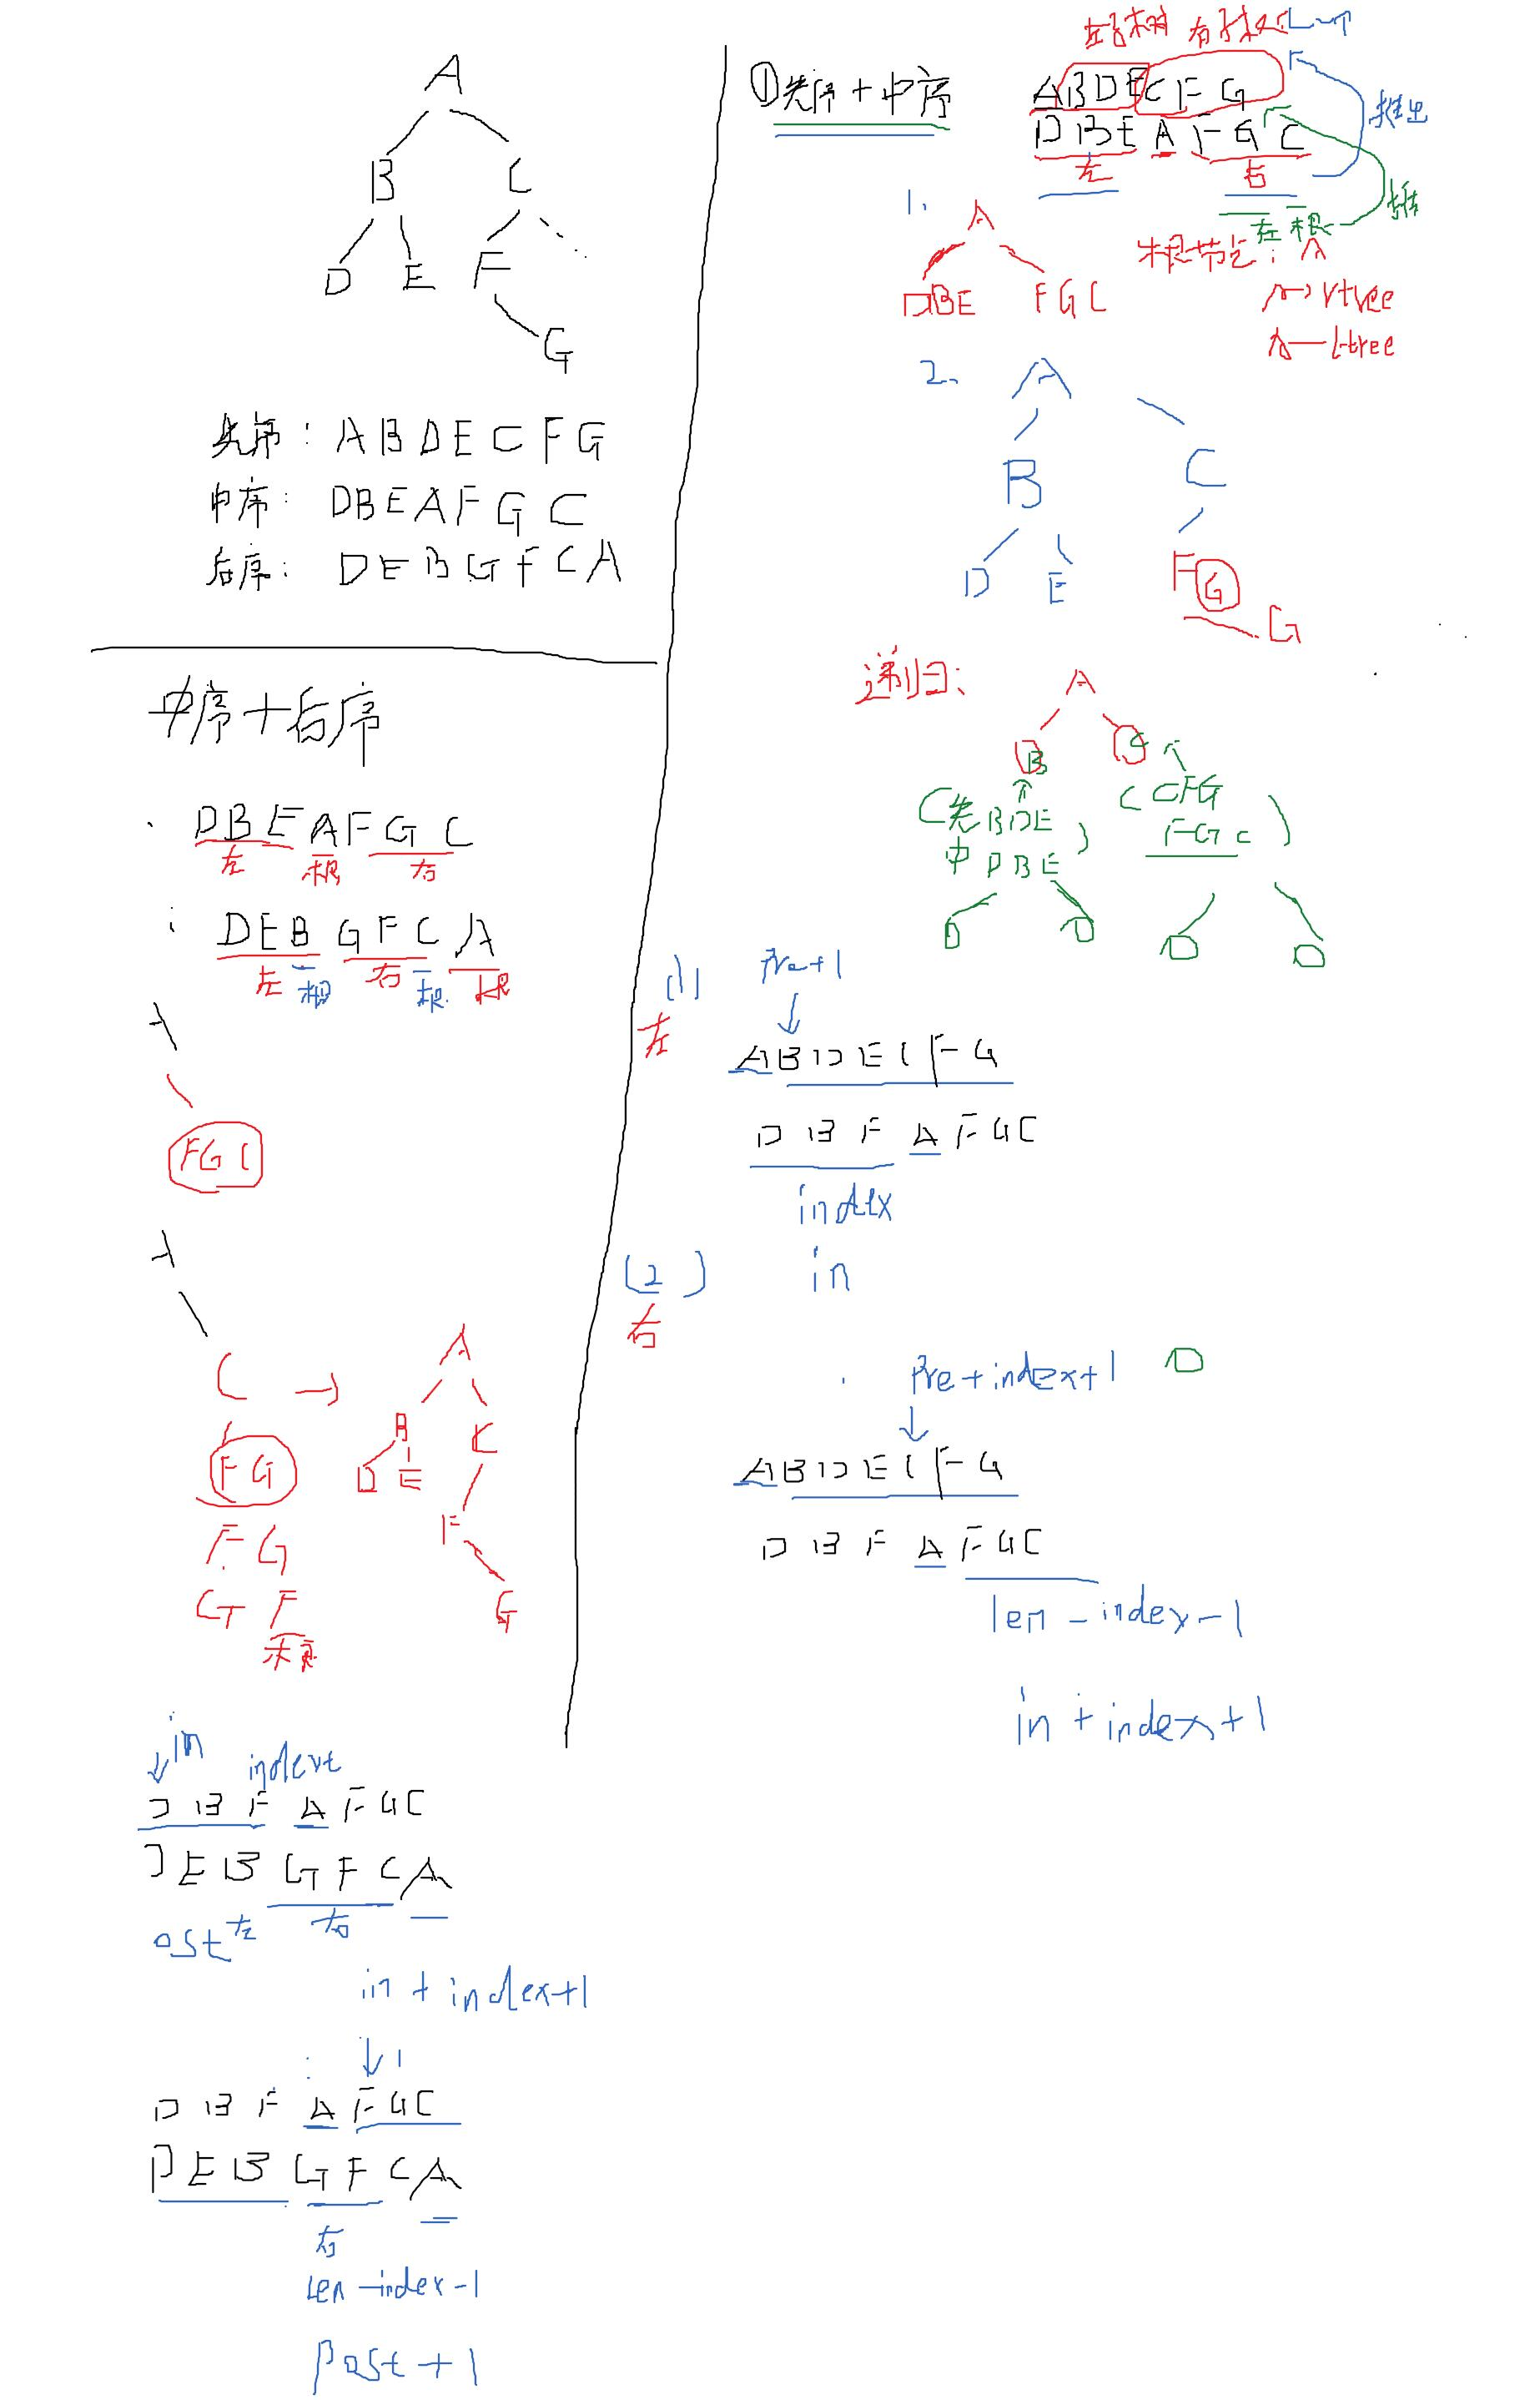 A
B C
D E F
G
先序: A B D E C F G
中序: D B E A F G C
后序: D E B G F C A
中序+后序
D B E A F G C
左 根 右
D E B G F C A
左 根 右 根 根
F G C
C →
F G
F G
G F
A
B C
D E F
G
in index
D B E A F G C
D E B G F C A
左 右
in + index+1
D B E A F G C
D E B G F C A
右
len - index - 1
post + 1
①先序+中序
左子树 右子树
A B D E C F G
D B E A F G C
推出
左 右
左 根
1.
A
DBE F G C
根节点: A
rtree
l-tree
2. A
B C
D E F G
G
递归:
A
B C
(先 B D E
中 D B E )
( C F G
F G C )
(1) pre+1
左
A B D E C F G
D B E A F G C
index
in
(2)
右
pre + index+1
A B D E C F G
D B E A F G C
len - index - 1
in + index+1